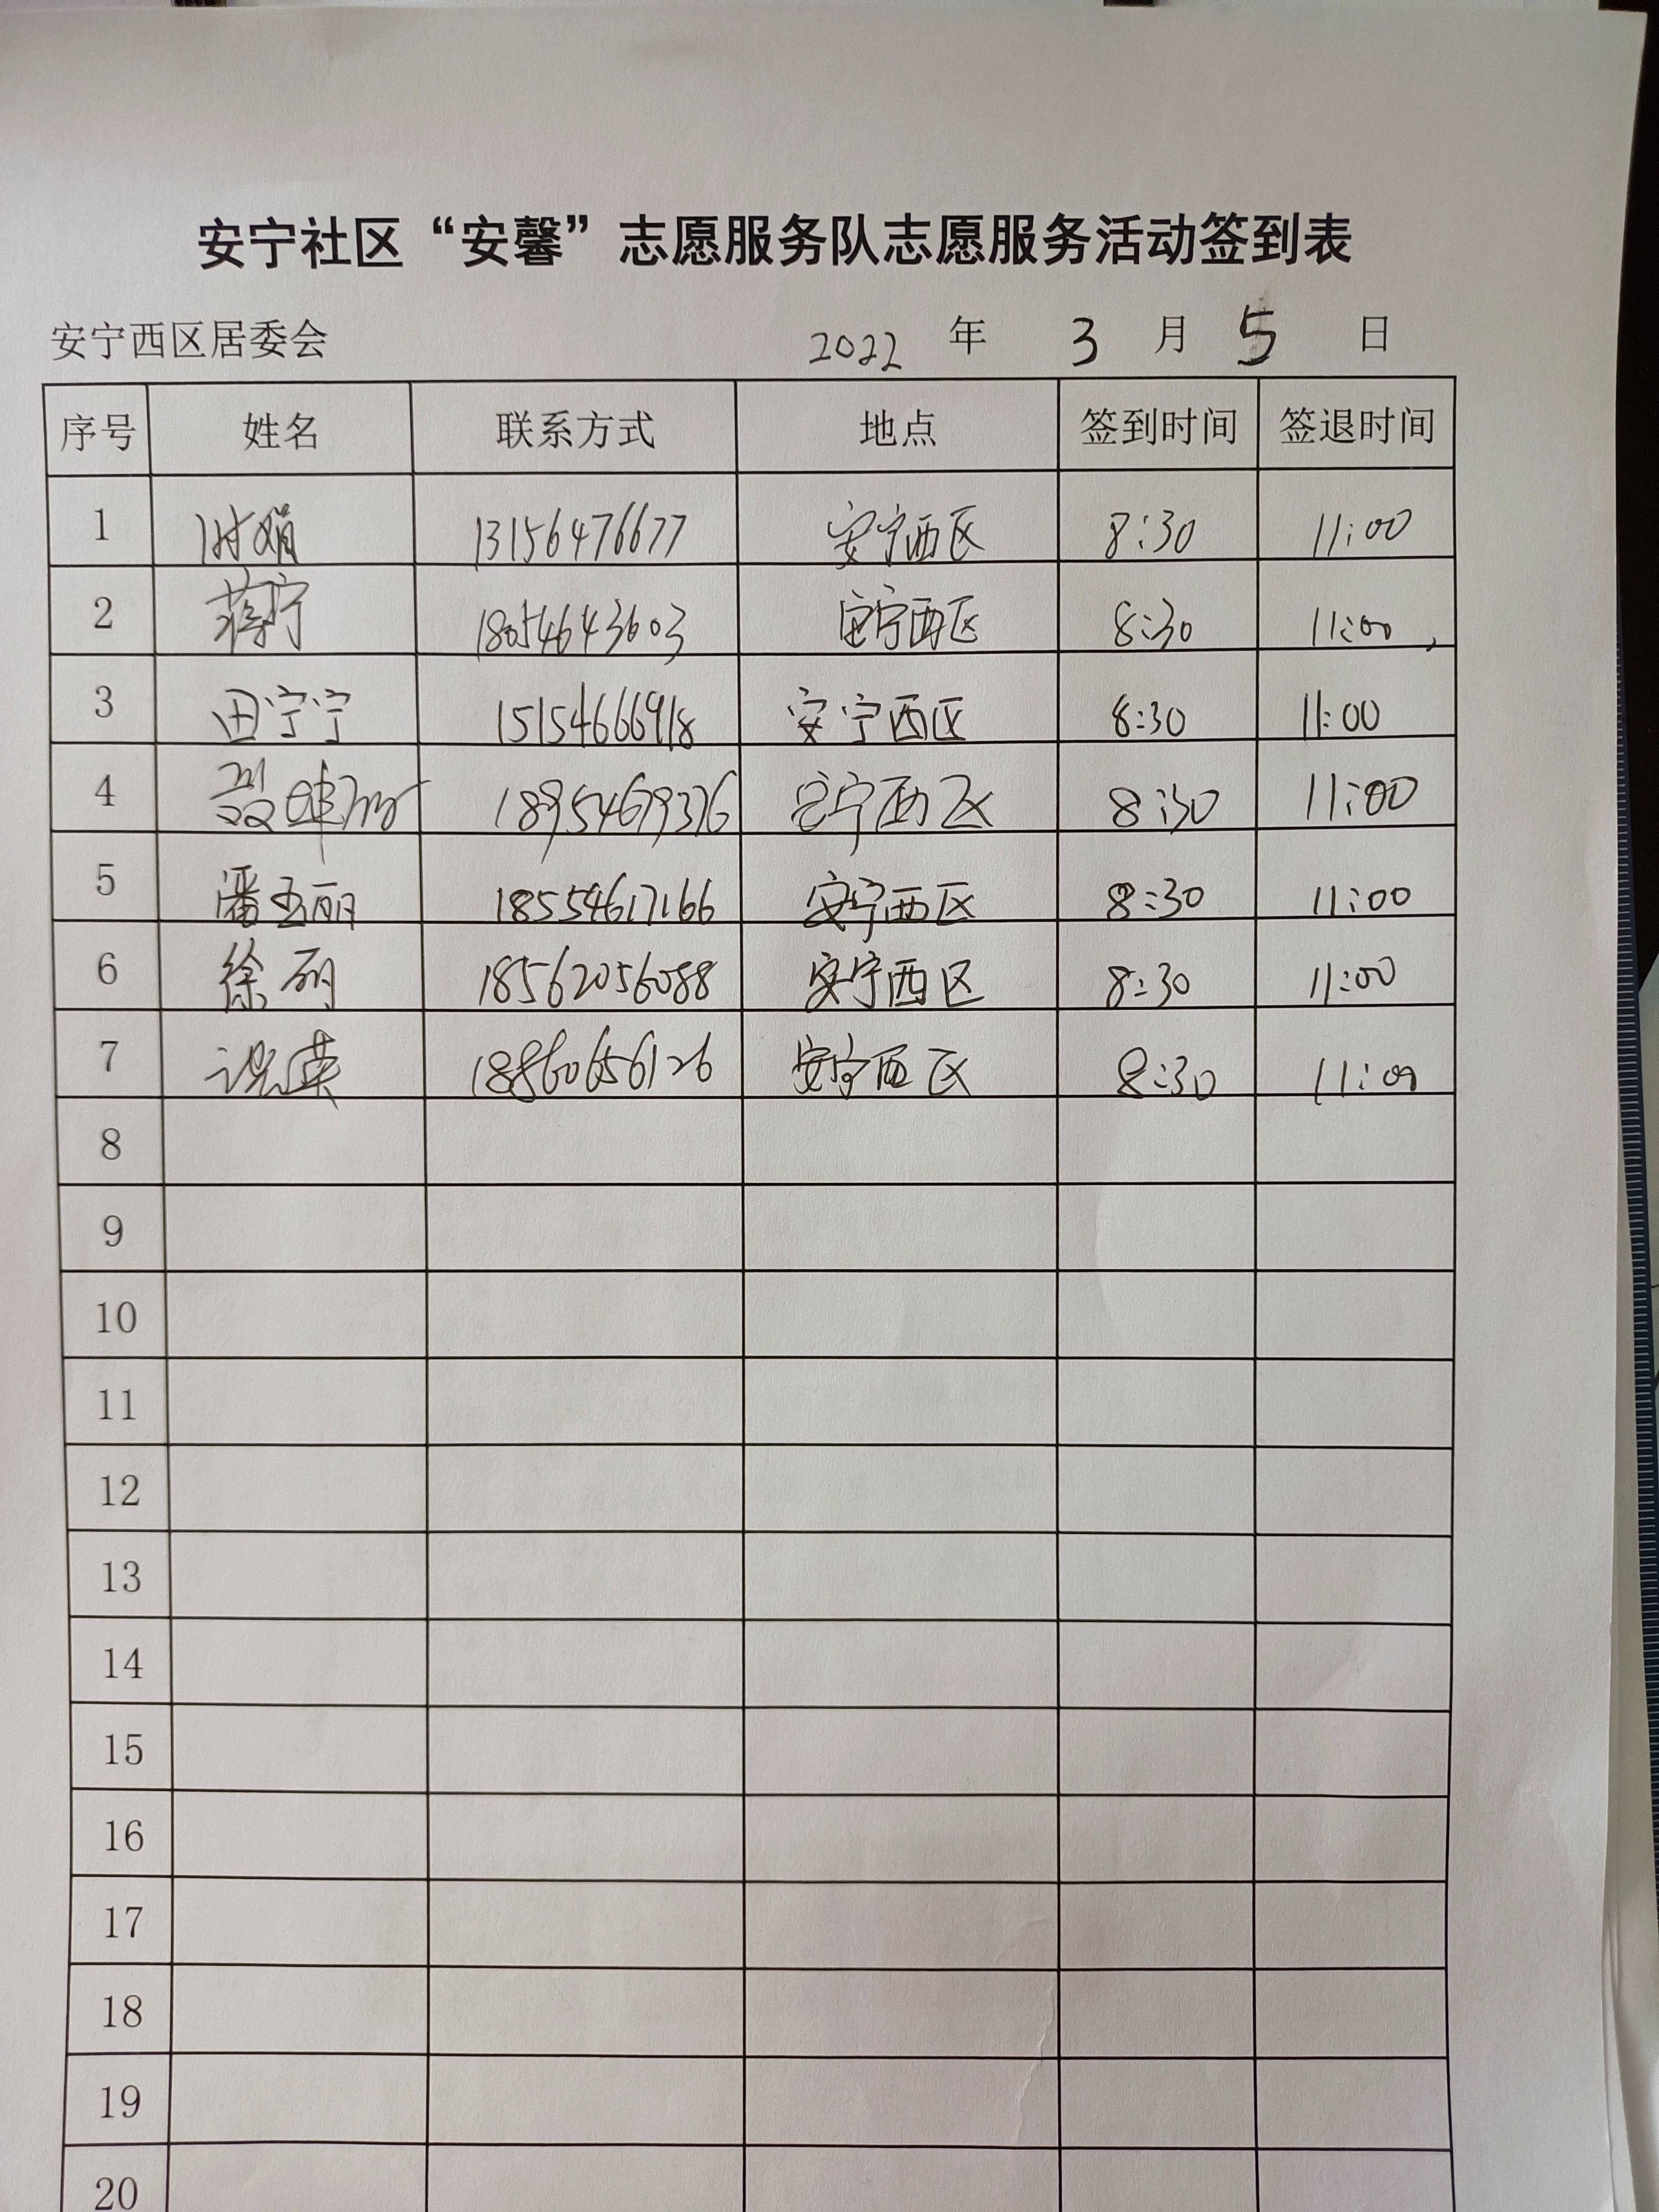 安宁社区“安馨”志愿服务队志愿服务活动签到表
安宁西区居委会 2022 年 3 月 5 日
序号 姓名 联系方式 地点 签到时间 签退时间
1 时娟 13156476677 安宁西区 8:30 11:00
2 蒋宁 18054643603 安宁西区 8:30 11:00
3 田宁宁 15154666918 安宁西区 8:30 11:00
4 18954679376 安宁西区 8:30 11:00
5 潘玉丽 18554617166 安宁西区 8:30 11:00
6 徐丽 18562056088 安宁西区 8:30 11:00
7 安宁西区 8:30 11:00
8
9
10
11
12
13
14
15
16
17
18
19
20